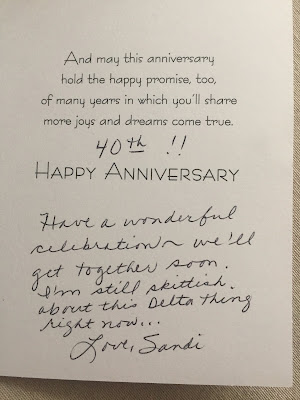 And may this anniversary
hold the happy promise, too,
of many years in which you'll share
more joys and dreams come true.
40th !!
HAPPY ANNIVERSARY
Have a wonderful
celebration~ we'll
get together soon.
I'm still skittish
about this Delta thing
right now...
Love, Sandi